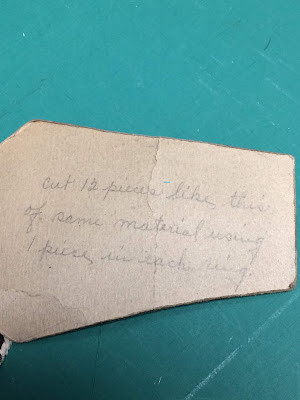 cut 12 pieces like this
of same material using
1 piece in each ring.